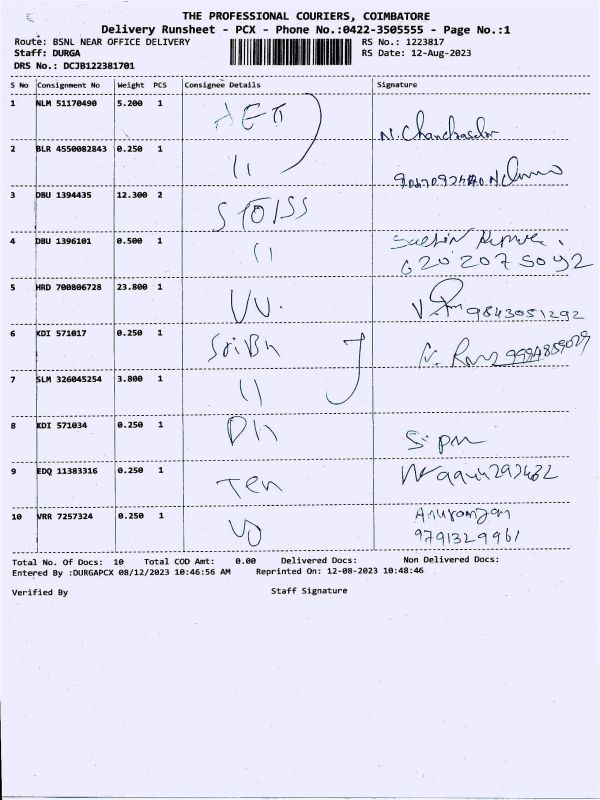 THE PROFESSIONAL COURIERS, COIMBATORE
Delivery Runsheet - PCX - Phone No.:0422-3505555 - Page No.:1
Route: BSNL NEAR OFFICE DELIVERY RS No.: 1223817
Staff: DURGA RS Date: 12-Aug-2023
DRS No.: DCJB122381701
S No Consignment No Weight PCS Consignee Details Signature
1 NLM 51170490 5.200 1
N. Chandrasekar
2 BLR 4550082843 0.250 1 11
3 DBU 1394435 12.300 2 STOISS
4 DBU 1396101 0.500 1 11
6202075092
5 HRD 700806728 23.800 1 VV. 9843051292
6 KDI 571017 0.250 1 SriBh
7 SLM 326045254 3.800 1 11
8 KDI 571034 0.250 1
9 EDQ 11383316 0.250 1 Ten
10 VRR 7257324 0.250 1
9791329961
Total No. Of Docs: 10 Total COD Amt: 0.00 Delivered Docs: Non Delivered Docs:
Entered By :DURGAPCX 08/12/2023 10:46:56 AM Reprinted On: 12-08-2023 10:48:46
Verified By Staff Signature